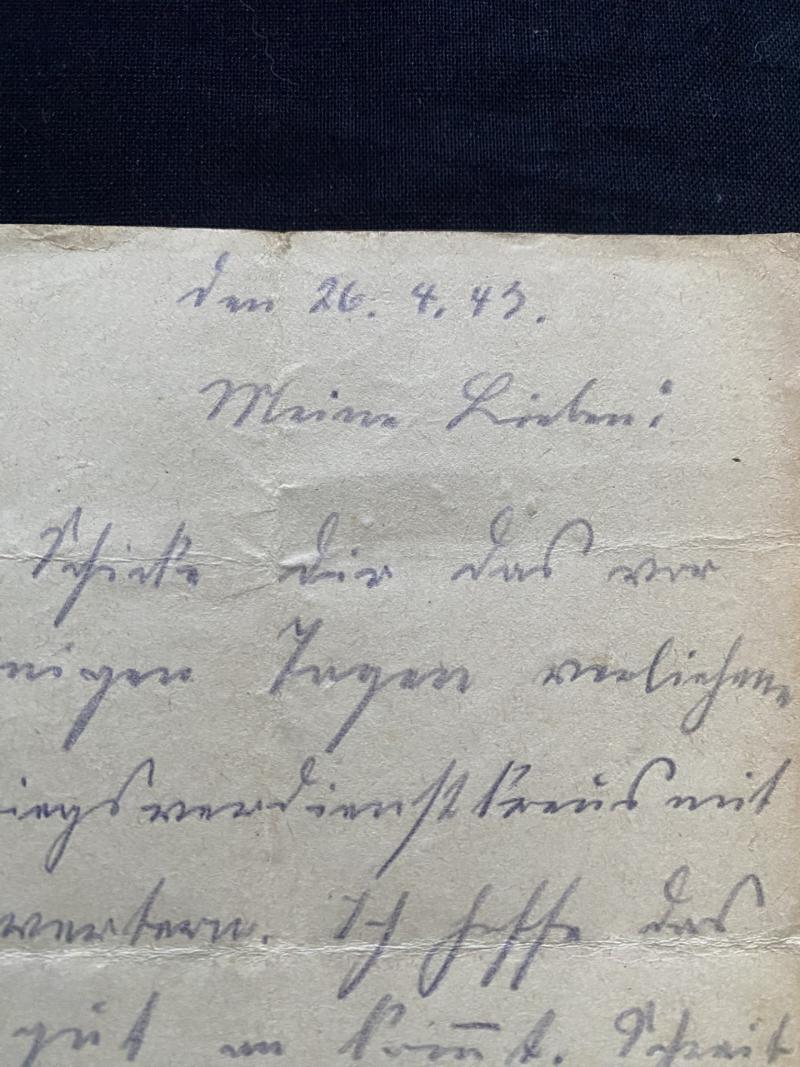 den 26. 4. 43.
Meine Lieben!
Schicke dir das vor
nigen Tagen verliehene
iegsverdienstkreus mit
wertern. Ich hoffe das
gut an kom̅t. Schreib